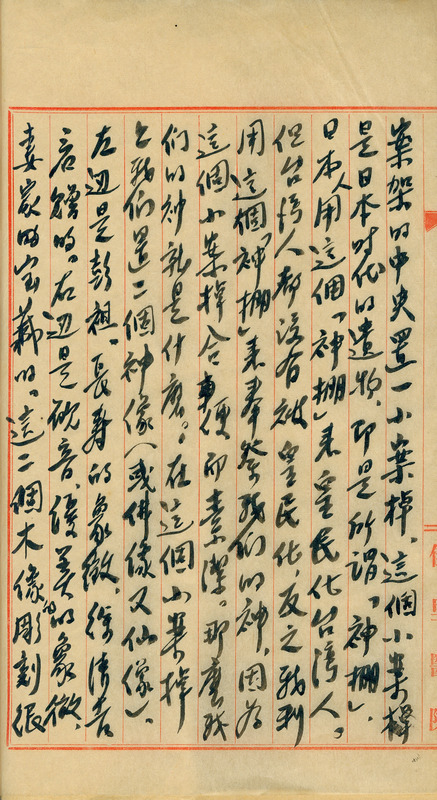 案架的中央置一小案棹，這個小案棹
是日本时代的遺物，即是所謂「神棚」，
日本人用這個「神棚」来皇民化台湾人。
但台湾人都沒有被皇民化，反之我利
用這個「神棚」来奉祭我们的神，因为
這個小案棹合車便即素潔。那麼我
们的神就是什麼。在這個小案棹
上我们置二個神像（或佛像又仙像）。
左边是彭祖，長寿的象徵，徐清吉
君贈的。右边是观音，優美的象徵，
妻家的宝藏的。這二個木像的彫刻很